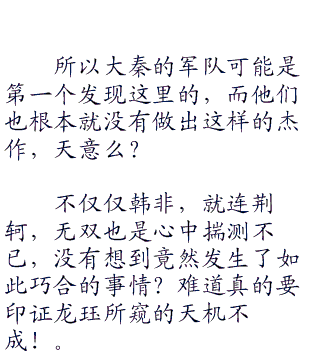 所以大秦的军队可能是
第一个发现这里的，而他们
也根本就没有做出这样的杰
作，天意么？
不仅仅韩非，就连荆
轲，无双也是心中揣测不
已，没有想到竟然发生了如
此巧合的事情？难道真的要
印证龙珏所窥的天机不
成！。